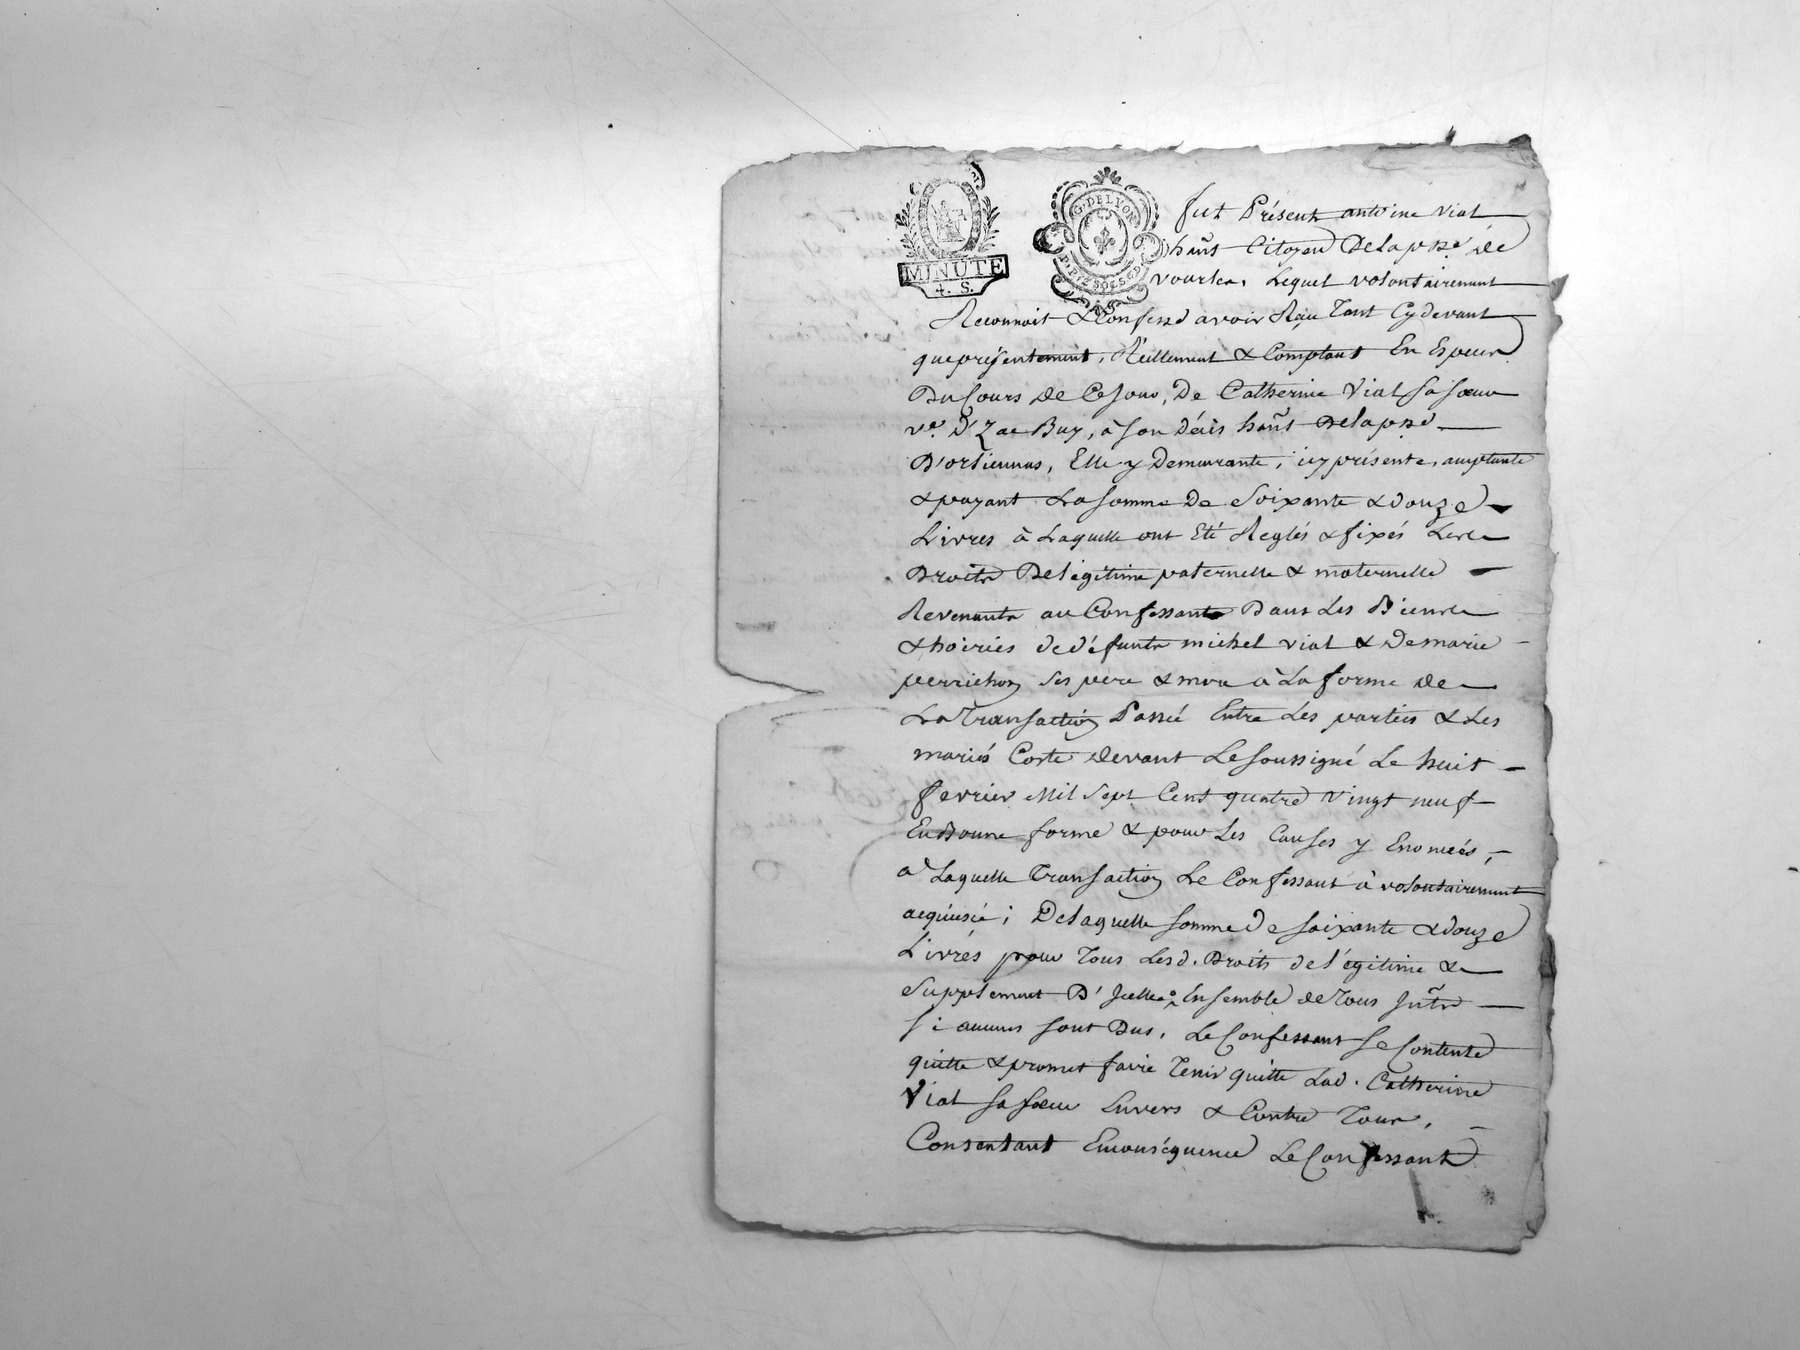 MINUTE
4. S.
G. DE LYON
fut Présent antoine vial
hañt Citoyen Delapsse. de
vourles, Lequel volontairement
Reconnoit & Confesse avoir Reçu Tant Cydevant
que présentement, Réellement & Comptant En Especes
Du Cours de Ce Jour, De Catherine Vial Sa Sœur
ve. D' Zac Buy, à Son Décès hañt Delapsse
D'orliennas, Elle y Demeurante, icy présente, acceptante
& payant La Somme De Soixante & douze
Livres à Laquelle ont Eté Reglés & fixés Les
Droits De légitime paternelle & maternelle
Revenants au Confessant Dans Les Biens
& hoiries de défunts michel vial & De marie
perrichon ses pere & mere à La forme de
La Transaction Passée Entre Les parties & Les
mariés Coste devant Le Soussigné Le huit
fevrier Mil Sept Cent quatre vingt neuf
En Bonne forme & pour Les Causes y Enoncées,
a Laquelle Transaction Le Confessant à volontairement
acquiescé; De laquelle Somme De Soixante & douze
Livres pour Tous Lesd. Droits de légitime &
Supplement D'Icelle Ensemble de Tous Jntts
Si aucuns Sont Dus, Le Confessant Se Contente
quitte & promet faire Tenir quitte Lad. Catherine
Vial Sa Sœur Envers & Contre Tous,
Consentant En conséquence Le Confessant